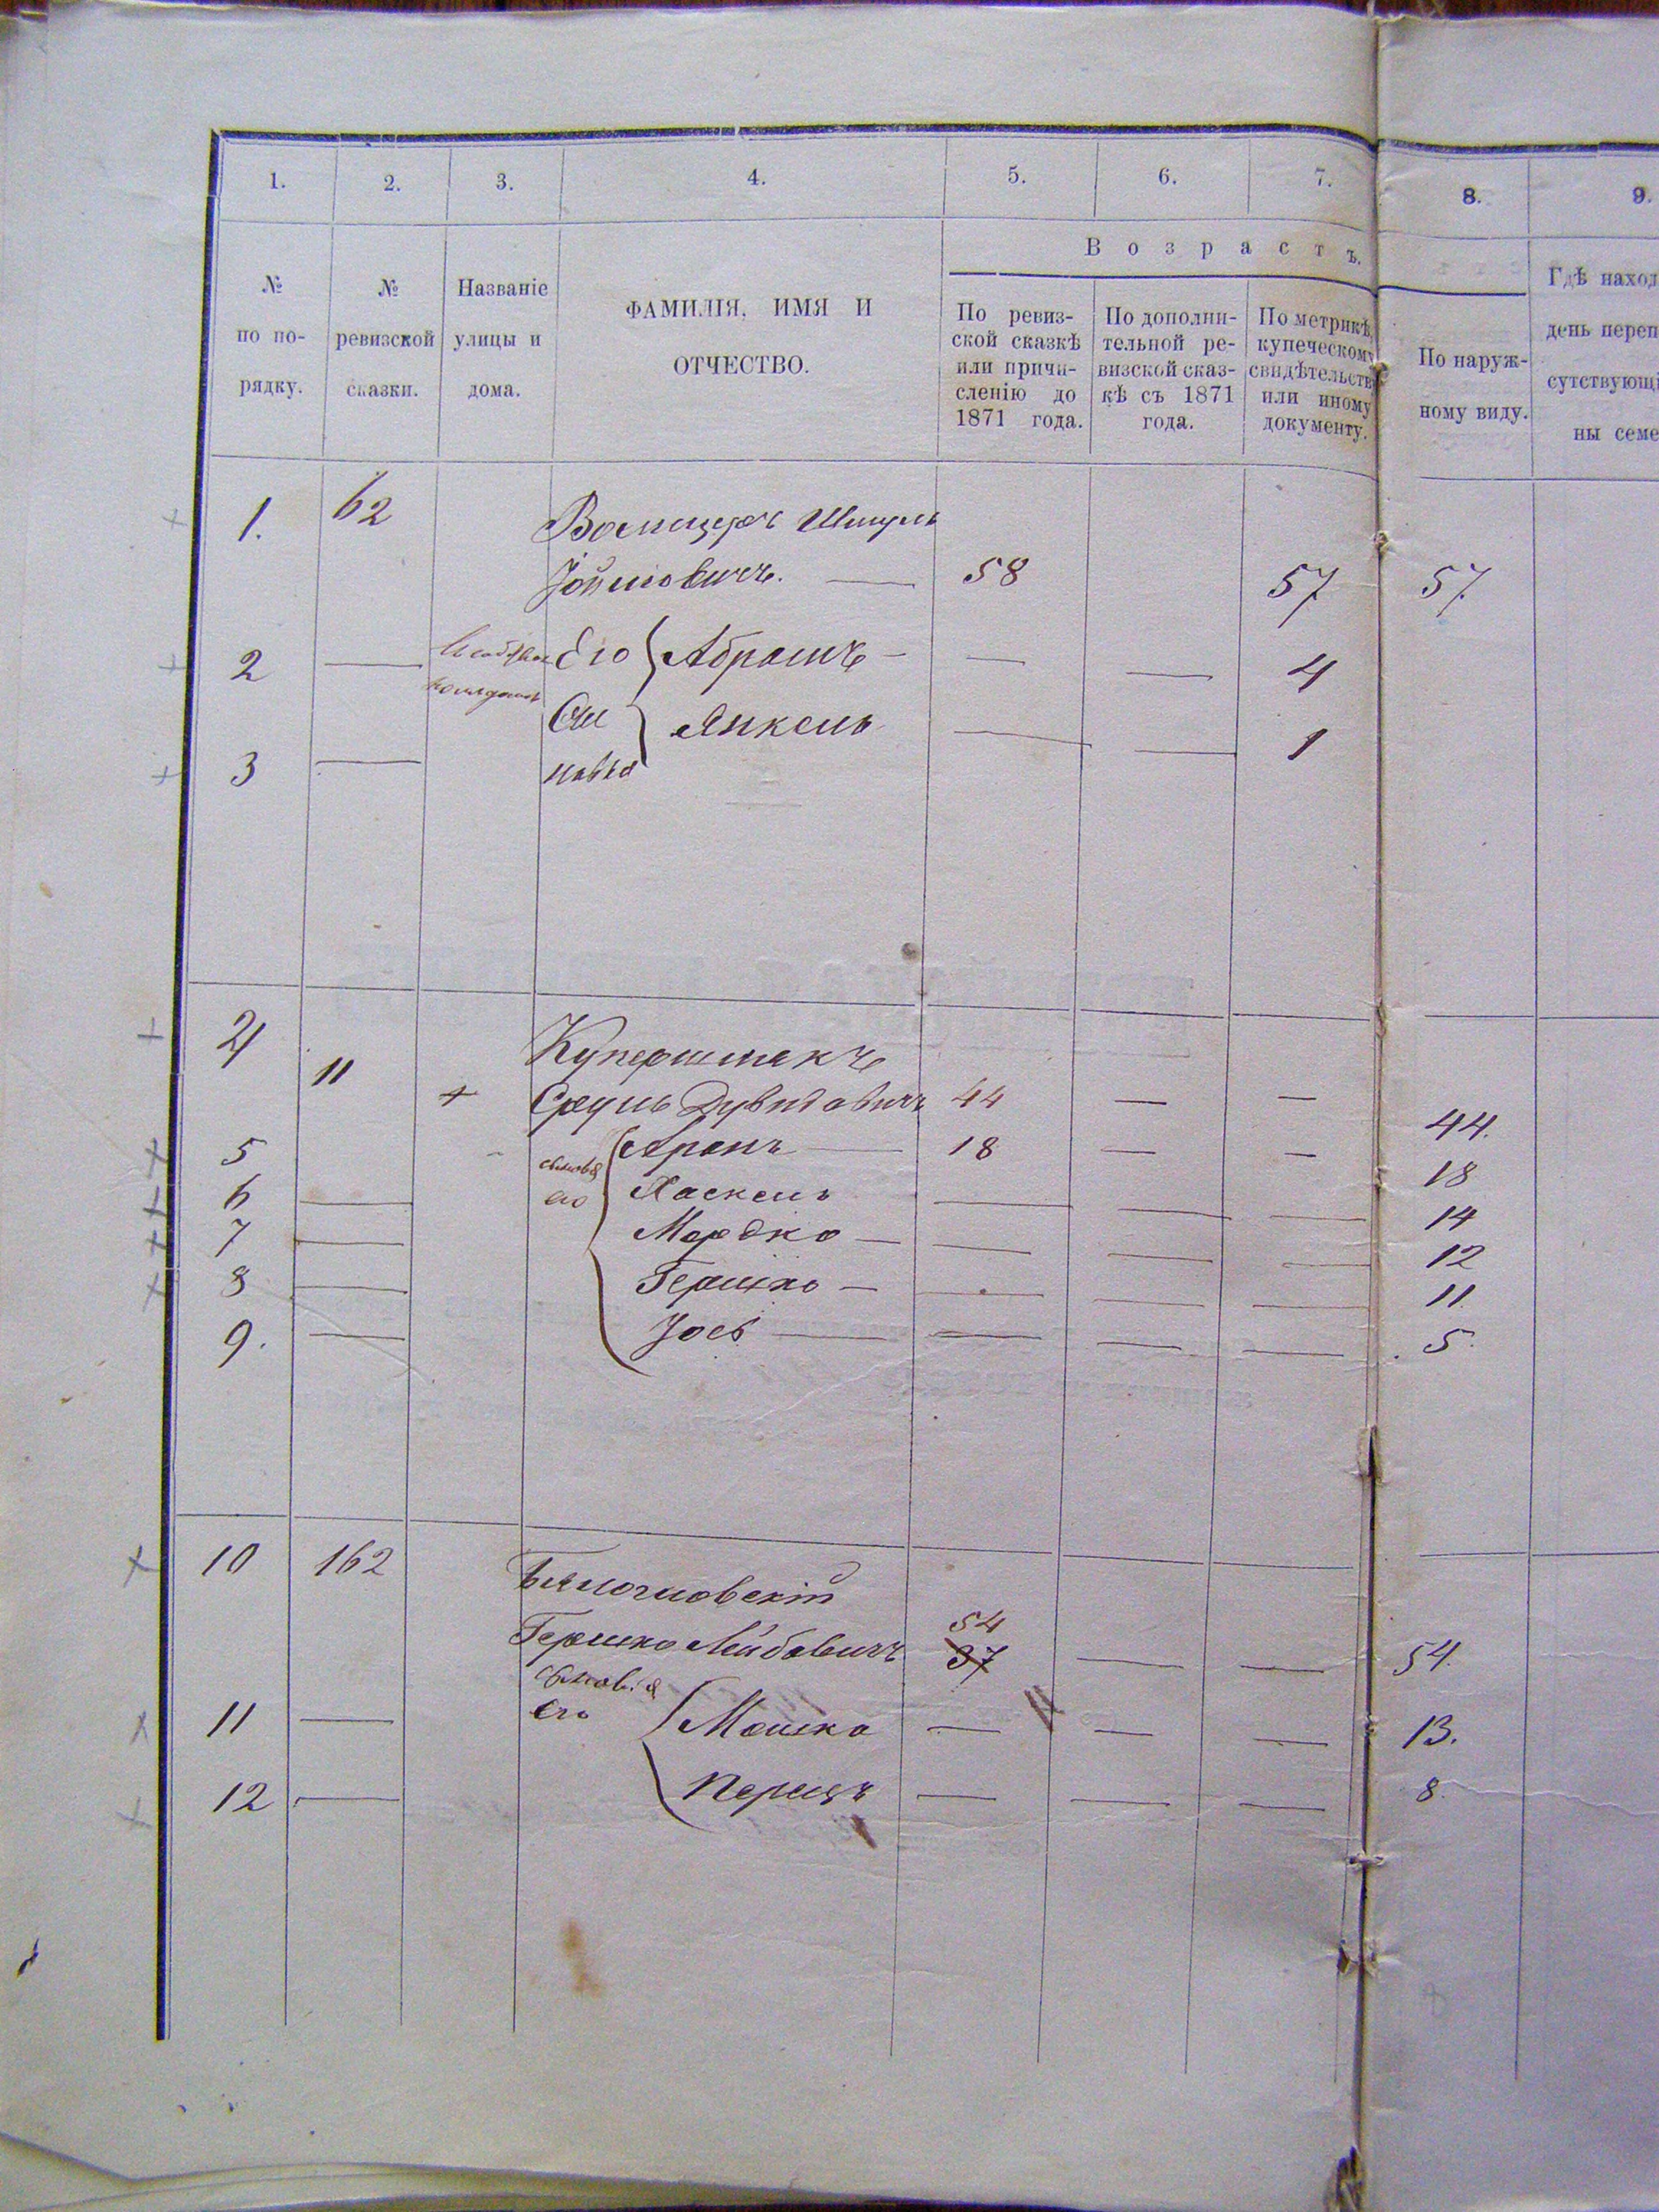 1. 2. 3. 4. 5. 6. 7. 8. 9.
Возрастъ.
№ по по-рядку.
№ ревизской сказки.
Названіе улицы и дома.
ФАМИЛІЯ, ИМЯ И
ОТЧЕСТВО.
По ревиз-
ской сказкѣ
или причи-
сленію до
1871 года.
По дополни-
тельной ре-
визской сказ-
кѣ съ 1871
года.
По метрикѣ,
купеческому
свидѣтельству
или иному
документу.
По наруж-
ному виду.
Гдѣ наход
день переп
сутствующі
ны семе
1. 62 Шмуль
58 57 57.
2 Его Абрамъ 4
Сы Янкель
3 новья 1
4 Купершмакъ
11 + Сруль Дувидовичъ 44 44.
5 сыновья Аронъ 18 18
6 его Хаскель 14
7 Мордко 12
8 Гершко 11.
9. Іось 5.
10 162
Гершко Лейбовичъ 54 37 54.
сыновья
11 его Мошко 13.
12 Перецъ 8.